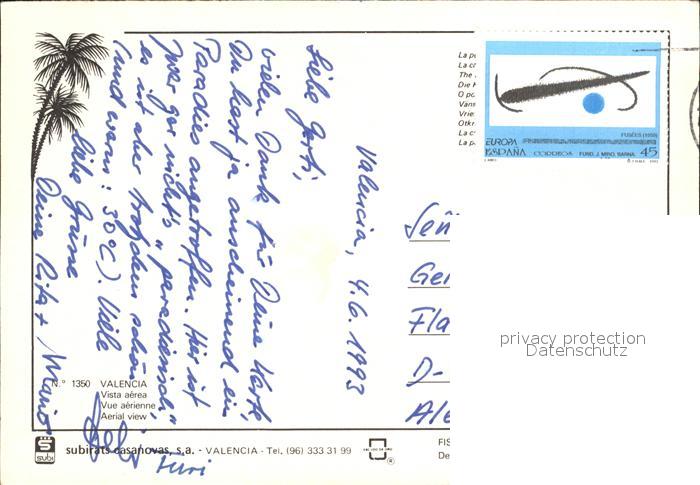 Valencia, 4.6.1993
Liebe Gerti,
vielen Dank für Deine Karte,
Du hast ja anscheinend ein
Paradies angetroffen. Hier ist
zwar gar nichts "paradiesisch",
es ist aber trotzdem schön
(und warm: 30°C). Viele
liebe Grüsse
Deine Rita + Mario
Señ
Ger
Fla
D-
Ale
La p
La c
The
Die
O po
Vans
Vrie
Otkr
La c
La p
FUSÉES (1959)
EUROPA
ESPAÑA CORREOS FUND. J. MIRO. BARNA. 45
privacy protection
Datenschutz
N.° 1350 VALENCIA
Vista aérea
Vue aérienne
Aerial view
SUBI
subirats casanovas, s.a. - VALENCIA - Tel. (96) 333 31 99
FIS
De